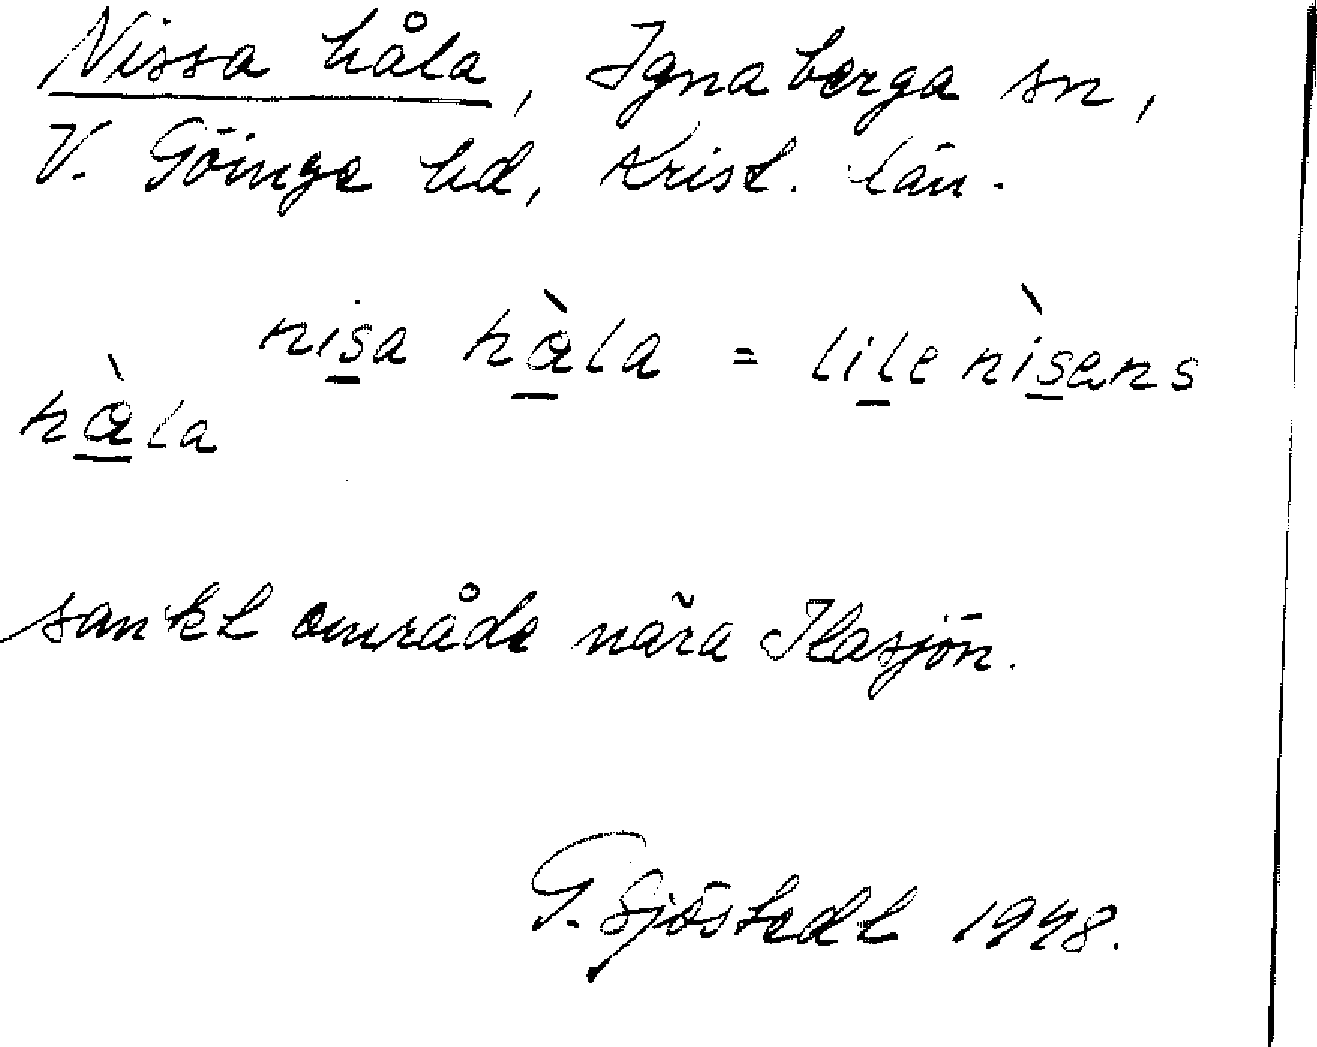 Nissa håla, Ignaberga sn,
V. Göinge hd, Krist. län.
nisa hàla = lile nìsens
hàla
sankt område nära Ilasjön.
G. Sjöstedt 1948.